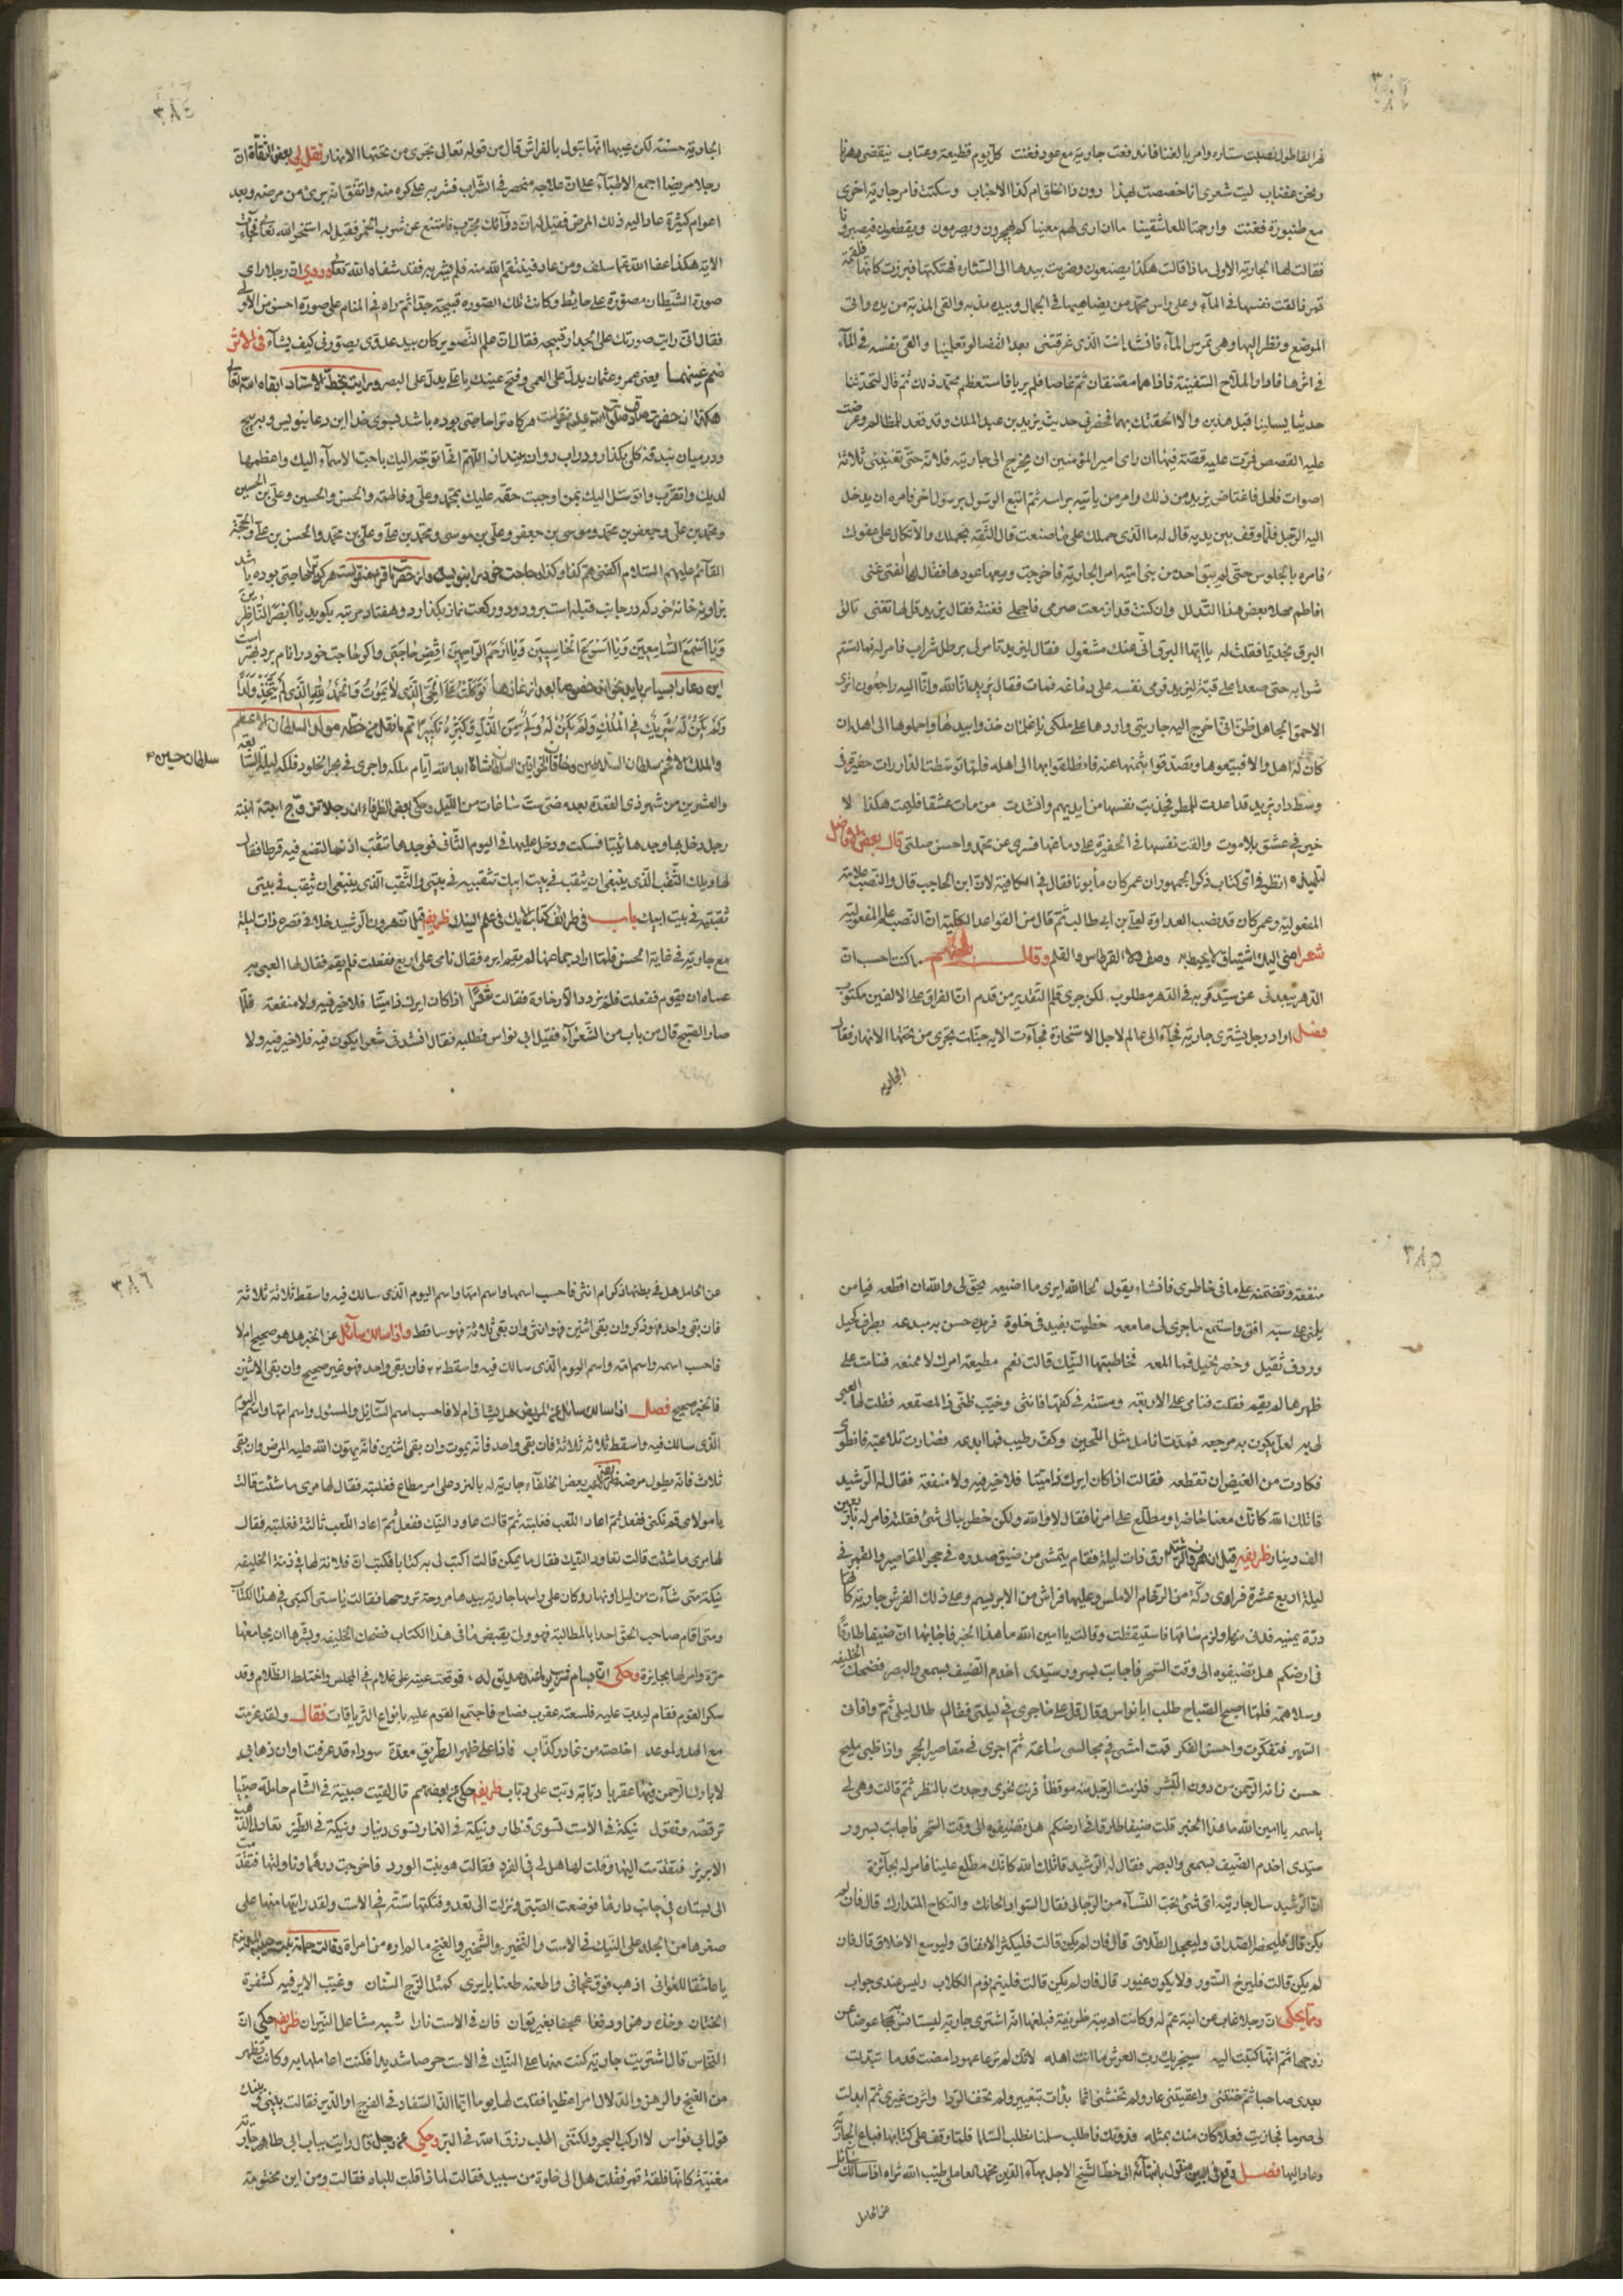 نهر القاطول فنصبت ستاره وامر بالغنا فاندفعت جارية مع عود فغنت كل يوم قطيعة وعتاب ينقضى دهرنا
ونحن غضاب ليت شعرى انا خصصت بهذا دون ذا الخلق ام كذا الاحباب وسكتت فامر جارية اخرى
مع طنبورة فغنت وارحمتا للعاشقينا ما ان ارى لهم معينا كم يهجرون ويصرمون ويقطعون فيصبرونا
فقالت لها الجارية الاولى ما ذا قالت هكذا يصنعون وضربت بيدها الى الستاره فهتكتها فبرزت كانها فلقة
قمر فالقت نفسها فى الماء وعلى راس محمد من يضاهيها فى الجمال وبيده مذبه والقى المذبة من يده واتى
الموضع ونظر اليها وهى تمرس الماء فانشا انت الذى غرقتنى بعد القضا لو تعلمينا والقى نفسه فى الماء
فى اثرها فادار الملاح السفينة فاذا هما معتنقان ثم غاصا فلم يريا فاستعظم محمد ذلك ثم قال لتحدثنا
حديثا يسلينا قبل هذين والا الحقتك بهما فحضرنى حديث يزيد بن عبد الملك وقد قعد للمظالم وعرضت
عليه القصص فمرت عليه قصة فيها ان راى امير المؤمنين ان يخرج الى جاريته فلانة حتى تغنينى ثلاثة
اصوات فلعل فاغتاض يزيد من ذلك وامر من ياتيه براسه ثم اتبع الرسول برسول اخر فامره ان يدخل
اليه الرجل فلما وقف بين يديه قال له ما الذى حملك على ما صنعت قال الثقة بحملك والاتكال على عفوك
فامره بالجلوس حتى لم يبق احد من بنى اميه امر الجارية فاخرجت ومعها عودها فقال لها الفتى غنى
افاطم مهلا بعض هذا التدلل وان كنت قد ازمعت صرمى فاجملى فغنته فقال يزيد قل لها تغنى تالق
البرق نجديا فقلت له يا ايها البرق انى عنك مشغول فقال ليزيد تامر لى برطل شراب فامر له فما استتم
شرابه حتى صعد اعلى قبة ليزيد فرمى نفسه على دماغه فمات فقال يزيد انا لله وانا اليه راجعون اترى
الاحمق الجاهل ظن انى اخرج اليه جاريتى واردها على ملكى يا غلمان خذوا بيدها واحملوها الى اهله ان
كان له اهل والا فبيعوها وتصدقوا بثمنها عنه فانطلقوا بها الى اهله فلما توسطت الدار رات حفيرة فى
وسط دار يزيد قد اعدت للمطر فجذبت نفسها من ايديهم وانشدت من مات عشقا فليمت هكذا لا
خير فى عشق بلا موت والقت نفسها فى الحفيرة على دماغها فسرى عن محمد واحسن صلتى قال بعض الافاضل
لتلميذه انظر فى اى كتاب ذكر الجمهور ان عمر كان مأبونا فقال فى الكافية لان ابن الحاجب قال والنصب علامة
المفعولية وعمر كان قد نصب العداوة لعلى بن ابى طالب ثم قال من القواعد الكلية ان النصب علم المفعولية
شعر امنى اليك اشتياق لا يحيط به وصفى ولا القرطاس والقلم وقال بعضهم ما كنت احسب ان
الدهر يبعدنى عن سيد قربه فى الدهر مطلوب لكن جرى قلم التقدير من قدم ان الفراق على الالفين مكتوب
فصل اراد رجل يشترى جارية فجاء الى عالم لاجل الاستخارة فجاءت الاية جنات تجرى من تحتها الانهار فقال
الجارية
٣٨٤
الجارية حسنة لكن عيبها انها تبول بالفراش قال من قوله تعالى تجرى من تحتها الانهار نقل لى بعض الثقاة ان
رجلا مريضا اجمع الاطباء على ان علاجه منحصر فى الشراب فشربه على كره منه واتفق انه برئ من مرضه وبعد
اعوام كثيرة عاد اليه ذلك المرض فقيل له ان دوائك مجرب فامتنع عن شرب الخمر فقيل له استخر الله تعالى فجاءت
الاية هكذا عفا الله عما سلف ومن عاد فينتقم الله منه فلم يشربه فقد شفاه الله تعالى وروى ان رجلا راى
صورة الشيطان مصورة على حائط وكانت تلك الصورة قبيحة جدا ثم راه فى المنام على صورة احسن من الاولى
فقال انى رايت صورتك على الجدار قبيحه فقال ان علم التصوير كان بيد عدوى يصورنى كيف يشاء فى الاثر
ضم عينهما يعنى عمر وعثمان يدل على العمى وفتح عينك يا على يدل على البصر ورايت بخط الاستاد ابقاه الله تعالى
هكذا از حضرت صادق صلوات الله عليه منقولست هركاه ترا حاجتى بوده باشد بسوى خدا اين دعا بنويس وبپيچ
ودر ميان بندقه كلى بكذار ودر اب روان بينداز اللهم انى اتوجه اليك باحب الاسماء اليك واعظمها
لديك واتقرب واتوسل اليك بمن اوجبت حقه عليك بمحمد وعلى وفاطمة والحسن والحسين وعلى بن الحسين
ومحمد بن على وجعفر بن محمد وموسى بن جعفر وعلى بن موسى ومحمد بن على وعلى بن محمد والحسن بن على والحجة
القائم عليهم السلام اكفنى هم كذا وكذا وحاجت خود را بنويسد واز حضرت باقر ع منقولست هركرا حاجتى بوده باشد
بزاويه خانه خود كه در جانب قبله است برود ودو ركعت نماز بكذارد وهفتاد مرتبه بكويد يا ابصر الناظرين
ويا اسمع السامعين ويا اسرع الحاسبين ويا ارحم الراحمين اقض حاجتى واكر حاجت خود را نام برد بهتر است
اين دعا را بسيار بايد بخواند خصوصا بعد از نمازها توكلت على الحى الذى لا يموت والحمد لله الذى لم يتخذ ولدا
ولم يكن له شريك فى الملك ولم يكن له ولى من الذل وكبره تكبيرا تم ما نقل من خطه مولى السلطان الاعظم
والملك الافخم سلطان السلاطين وخاقان الخواقين السلطان شاه ابد الله ايام ملكه واجرى فى بحر الخلود فلكه ليلة السابعة
سلطان حسين
والعشرين من شهر ذى القعدة بعد مضى ست ساعات من الليل وحكى بعض الظرفاء ان رجلا تزوج ابنة
رجل دخل بها وجدها ثيبا فسكت ودخل عليها فى اليوم الثانى فوجدها تثقب اذنها لتضع فيه قرطا فقال
لها ويلك الثقب الذى ينبغى ان يثقب فى بيت ابيك تثقبينه فى بيتى والثقب الذى ينبغى ان يثقب فى بيتى
ثقبتيه فى بيت ابيك باب فى طرايف ظريفه قيل ان هرون الرشيد خلا فى قصره ذات ليلة
مع جارية فى غاية الحسن فلما اراد جماعها لم يقم ايره فقال نامى على اربع ففعلت فلم يقم فقال لها العبى به
عساه ان يقوم ففعلت فلم يزدد الا رخاوة فقالت شعرا اذا كان ايرك ذا ميتا فلا خير فيه ولا منفعة فلما
صار الصبح قال من بالباب من الشعراء فقيل ابى نواس فطلبه فقال انشدنى شعرا يكون فيه فلا خير فيه ولا
٣٨٥
منفعة وتضمنه على ما فى خاطرى فانشاء يقول لحا الله ايرى ما اضيعه يحق لى والله ان اقطعه فيا من
يلمنى على سبه افق واستمع ما جرى لى معه خظيت بغيد فى خلوة فريدة حسن به مبدعه بطرف كحيل
وردف ثقيل وخصر نحيل فما المعه فخاطبتها النيك قالت نعم مطيعة امرك لا ممنعه فنامت على
ظهرها لم يقم فقلت فنامى على الاربعه ومسته فى كفها فانثنى وخيب ظنى ذا المصفعه فقلت لها العبى
لى به لعل يكون به مرجعه فمدت انامل مثل اللجين وكف رطيب فما ابدعه فصارت تلاعبه فانطوى
فكادت من الغيض ان تقطعه فقالت اذا كان ايرك ذا ميتا فلا خير فيه ولا منفعة فقال له الرشيد
قاتلك الله كانك معنا حاضرا ومطلع على امرنا فقال لا والله ولكن خطر ببالى شئ فقلته فامر له باربعين
الف دينار ظريفه قيل ان هرون الرشيد ارق ذات ليلة فقام يتمشى من ضيق صدره فى حجر المقاصير والقمر فى
ليلة اربع عشرة فراى دكة من الرخام الاملس وعليها فراش من الابريسم وعلى ذلك الفرش جارية كانها
درة يتيمه فدنى منها ولزم ساقها فاستيقظت وقالت يا امين الله ما هذا الخبر فاجابها ان ضيفا طارقا
فى ارضكم هل تضيفوه الى وقت السحر فاجابت بسرور سيدى اخدم الضيف بسمعى والبصر فضحك الخليفه
وسلاه همه فلما اصبح الصباح طلب ابا نواس وقال قل على ما جرى فى ليلتى فقال طال ليلى ثم وافانى
السهر فتفكرت واحسن الفكر قمت امشى فى مجالسى ساعة ثم اجرى فى مقاصير الحجر واذا ظبى مليح
حسن زانه الرحمن من دون البشر فلزمت الرجل منه موقظا فرنت نحوى وجدت بالنظر ثم قالت وهى لى
باسمه يا امين الله ما هذا الخبر قلت ضيفا طارقا فى ارضكم هل تضيفوه الى وقت السحر فاجابت بسرور
سيدى اخدم الضيف بسمعى والبصر فقال له الرشيد قاتلك الله كانك مطلع علينا فامر له بجائزة
ان الرشيد سال جارية اى شئ تحب النساء من الرجال فقال السواد الحالك والنكاح المتدارك قال فان لم
يكن قال فليحضر الصداق وليعجل الطلاق قال فان لم يكن قالت فليكثر الانفاق وليوسع الاخلاق قال فان
لم يكن قالت فليرخ الستور ولا يكون غيور قال فان لم يكن قالت فلينم نوم الكلاب وليس عندى جواب
ومما يحكى ان رجلا غاب عن ابنة عم له وكانت اديبة ظريفة فبلغها انه اشترى جارية ليستانس بها عوضا عن
زوجها ثم انها كتبت اليه سيجزيك رب العرش ما انت اهله لانك لم ترعا عهودا مضت قدما تبدلت
بعدى صاحبا ثم خنتنى واعقبتنى عار ولم تخشى اثما بدات بتغيير ولم تخف الردا واثرت غيرى ثم ابدلت
لى صرما فجازيت فعلا كان منك بمثله فدونك فاطلب سلمنا نطلب السلما فلما وقف على كتابها فباع الجارية
وعاد اليها فصل وقع فى البين منقول بانهائه الى خط الشيخ الاجل بهاء الدين محمد العاملى طيب الله ثراه اذا سالك سائل
عن الحامل
٣٨٦
عن الحامل هل فى بطنها ذكر ام انثى فاحسب اسمها واسم امها واسم اليوم الذى سالك فيه واسقط ثلاثة ثلاثة
فان بقى واحد فهو ذكر وان بقى اثنين فهو انثى وان بقى ثلاثة فهو ساقط واذا سالك سائل عن الخبر هل هو صحيح ام لا
فاحسب اسمه واسم امه واسم اليوم الذى سالك فيه واسقط ٢٢ فان بقى واحد فهو غير صحيح وان بقى الاثنين
فالخبر صحيح فصل اذا سالك سائل عن المريض هل يشافى ام لا فاحسب اسم السائل والمسئول واسم امها واسم اليوم
الذى سالك فيه واسقط ثلاثة ثلاثة فان بقى واحد فانه يموت وان بقى اثنين فانه يهون الله عليه المرض وان بقى
ثلاث فانه يطول مرضه ظريفه لعب بعض الخلفاء جارية له بالنرد على امر مطاع فغلبته فقال لها مرى ما شئت قالت
يا مولاى قم نكنى ففعل ثم اعاد اللعب فغلبته ثم قالت عاود النيك ففعل ثم اعاد اللعب ثالثة فغلبته فقال
لها مرى ما شئت قالت تعاود النيك فقال ما يمكن قالت اكتب لى به كتابا فكتب ان فلانة لها فى ذمة الخليفه
نيكة متى شاءت من ليل او نهار وكان على راسها جارية بيدها مروحة تروحها فقالت يا ستى اكتبى فى هذا الكتاب
ومتى اقام صاحب الحق احدا بالمطالبة فهو ولى بقبض ما فى هذا الكتاب فضحك الخليفه وبشرها ان يجامعها
مرة وامر لها بجايزة وحكى ان بسام عند صديق له فوقعت عينه على غلام فى المجلس واختلط الظلام وقد
سكر القوم فقام ليدب عليه فلسعته عقرب فصاح فاجتمع القوم عليه بانواع الترياقات فقال ولقد عزمت
مع الهدو لموعد اخلصته من غادر كذاب فاذا على ظهر الطريق معدة سوداء قد عرفت اوان ذهابى
لا بارك الرحمن فيها عقربا دبابة دبت على دباب ظريفه حكى عن بعضهم قال لقيت صبية فى الشام حاملة صبيا
ترقصه وتقول نيكة فى الاست تسوى قنطار ونيكة فى الغار تسوى دينار ونيكة فى الطيز تعادل الذهب
الابريز فتقدمت اليها وقلت لها هل لى فى الفرد فقالت هو بنت الورد فاخرجت درهما وناولتها فتقدمت
الى بستان فى جانب دارها فوضعت الصبى ونزلت الى بعد ونكتها ستة فى الاست ولقد رايتها منها على
صغرها من الجلد على النيك فى الاست والنخير والشخير والغنج ما لم اره من امراة
يا عاشقا للغوانى اذهب فوق عجانى واطعنه طعنا بايرى كمثل الزج السنان وغيب الاير فيه كشفرة
الختان وخذه رهزا ودفعا عجفا بغير توان فان فى الاست نارا شبه مشاعل النيران ظريفه حكى ان
النخاس قال اشتريت جارية كنت منها على النيك فى الاست حرصا شديدا فكنت اعاملها به وكانت تظهر
من الغنج والرهز والدلال امرا عظيما فقلت لها يوما ايما الذ السفاد فى الفرج او الدبر فقالت بينى وبينك
قول ابى نواس لا اركب البحر ولكننى اطلب رزق الله فى البر وحكى عن رجل قال رايت بباب ابى طاهر جارية
مغنية كانها فلقة قمر فقلت هل الى خلوة من سبيل فقالت لماذا قلت للباه فقالت ومن اين مختومة